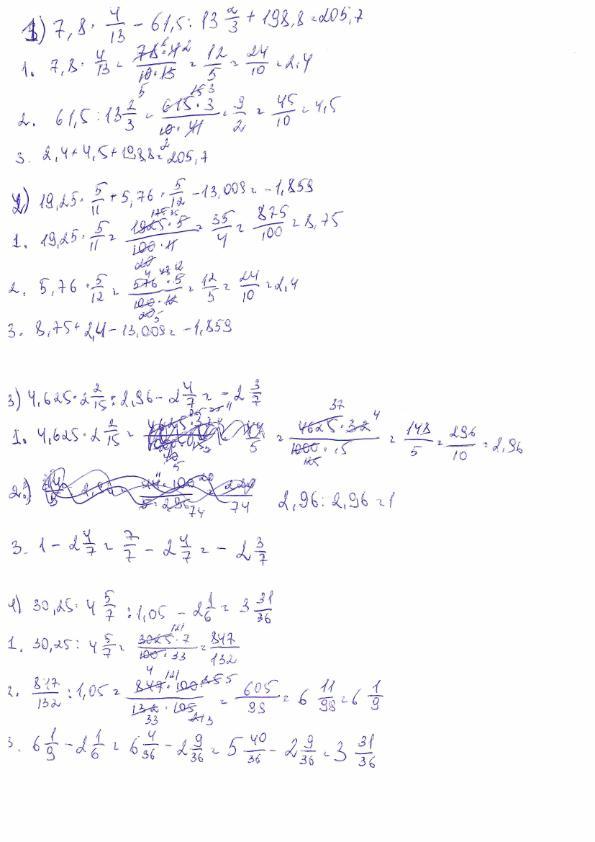 1) 7,8 · 4/13 - 61,5 : 13 2/3 + 198,8 = 205,7
1. 7,8 · 4/13 = 78·4/10·13 = 12/5 = 24/10 = 2,4
2. 61,5 : 13 2/3 = 615·3/10·41 = 9/2 = 45/10 = 4,5
3. 2,4 + 4,5 + 198,8 = 205,7
2) 19,25 · 5/11 + 5,76 · 5/12 - 13,009 = -1,859
1. 19,25 · 5/11 = 1925·5/100·11 = 35/4 = 875/100 = 8,75
2. 5,76 · 5/12 = 576·5/100·12 = 12/5 = 24/10 = 2,4
3. 8,75 + 2,4 - 13,009 = -1,859
3) 4,625 · 2 2/15 : 2,96 - 2 4/7 = -2 3/7
1. 4,625 · 2 2/15 = = 4625·32/1000·15 = 148/5 = 296/10 = 2,96
2. 2,96 : 2,96 = 1
3. 1 - 2 4/7 = 7/7 - 2 4/7 = -2 3/7
4) 30,25 : 4 5/7 : 1,05 - 2 1/6 = 3 31/36
1. 30,25 : 4 5/7 = 3025·7/100·33 = 847/132
2. 847/132 : 1,05 = 847·100/132·105 = 605/99 = 6 11/99 = 6 1/9
3. 6 1/9 - 2 1/6 = 6 4/36 - 2 9/36 = 5 40/36 - 2 9/36 = 3 31/36